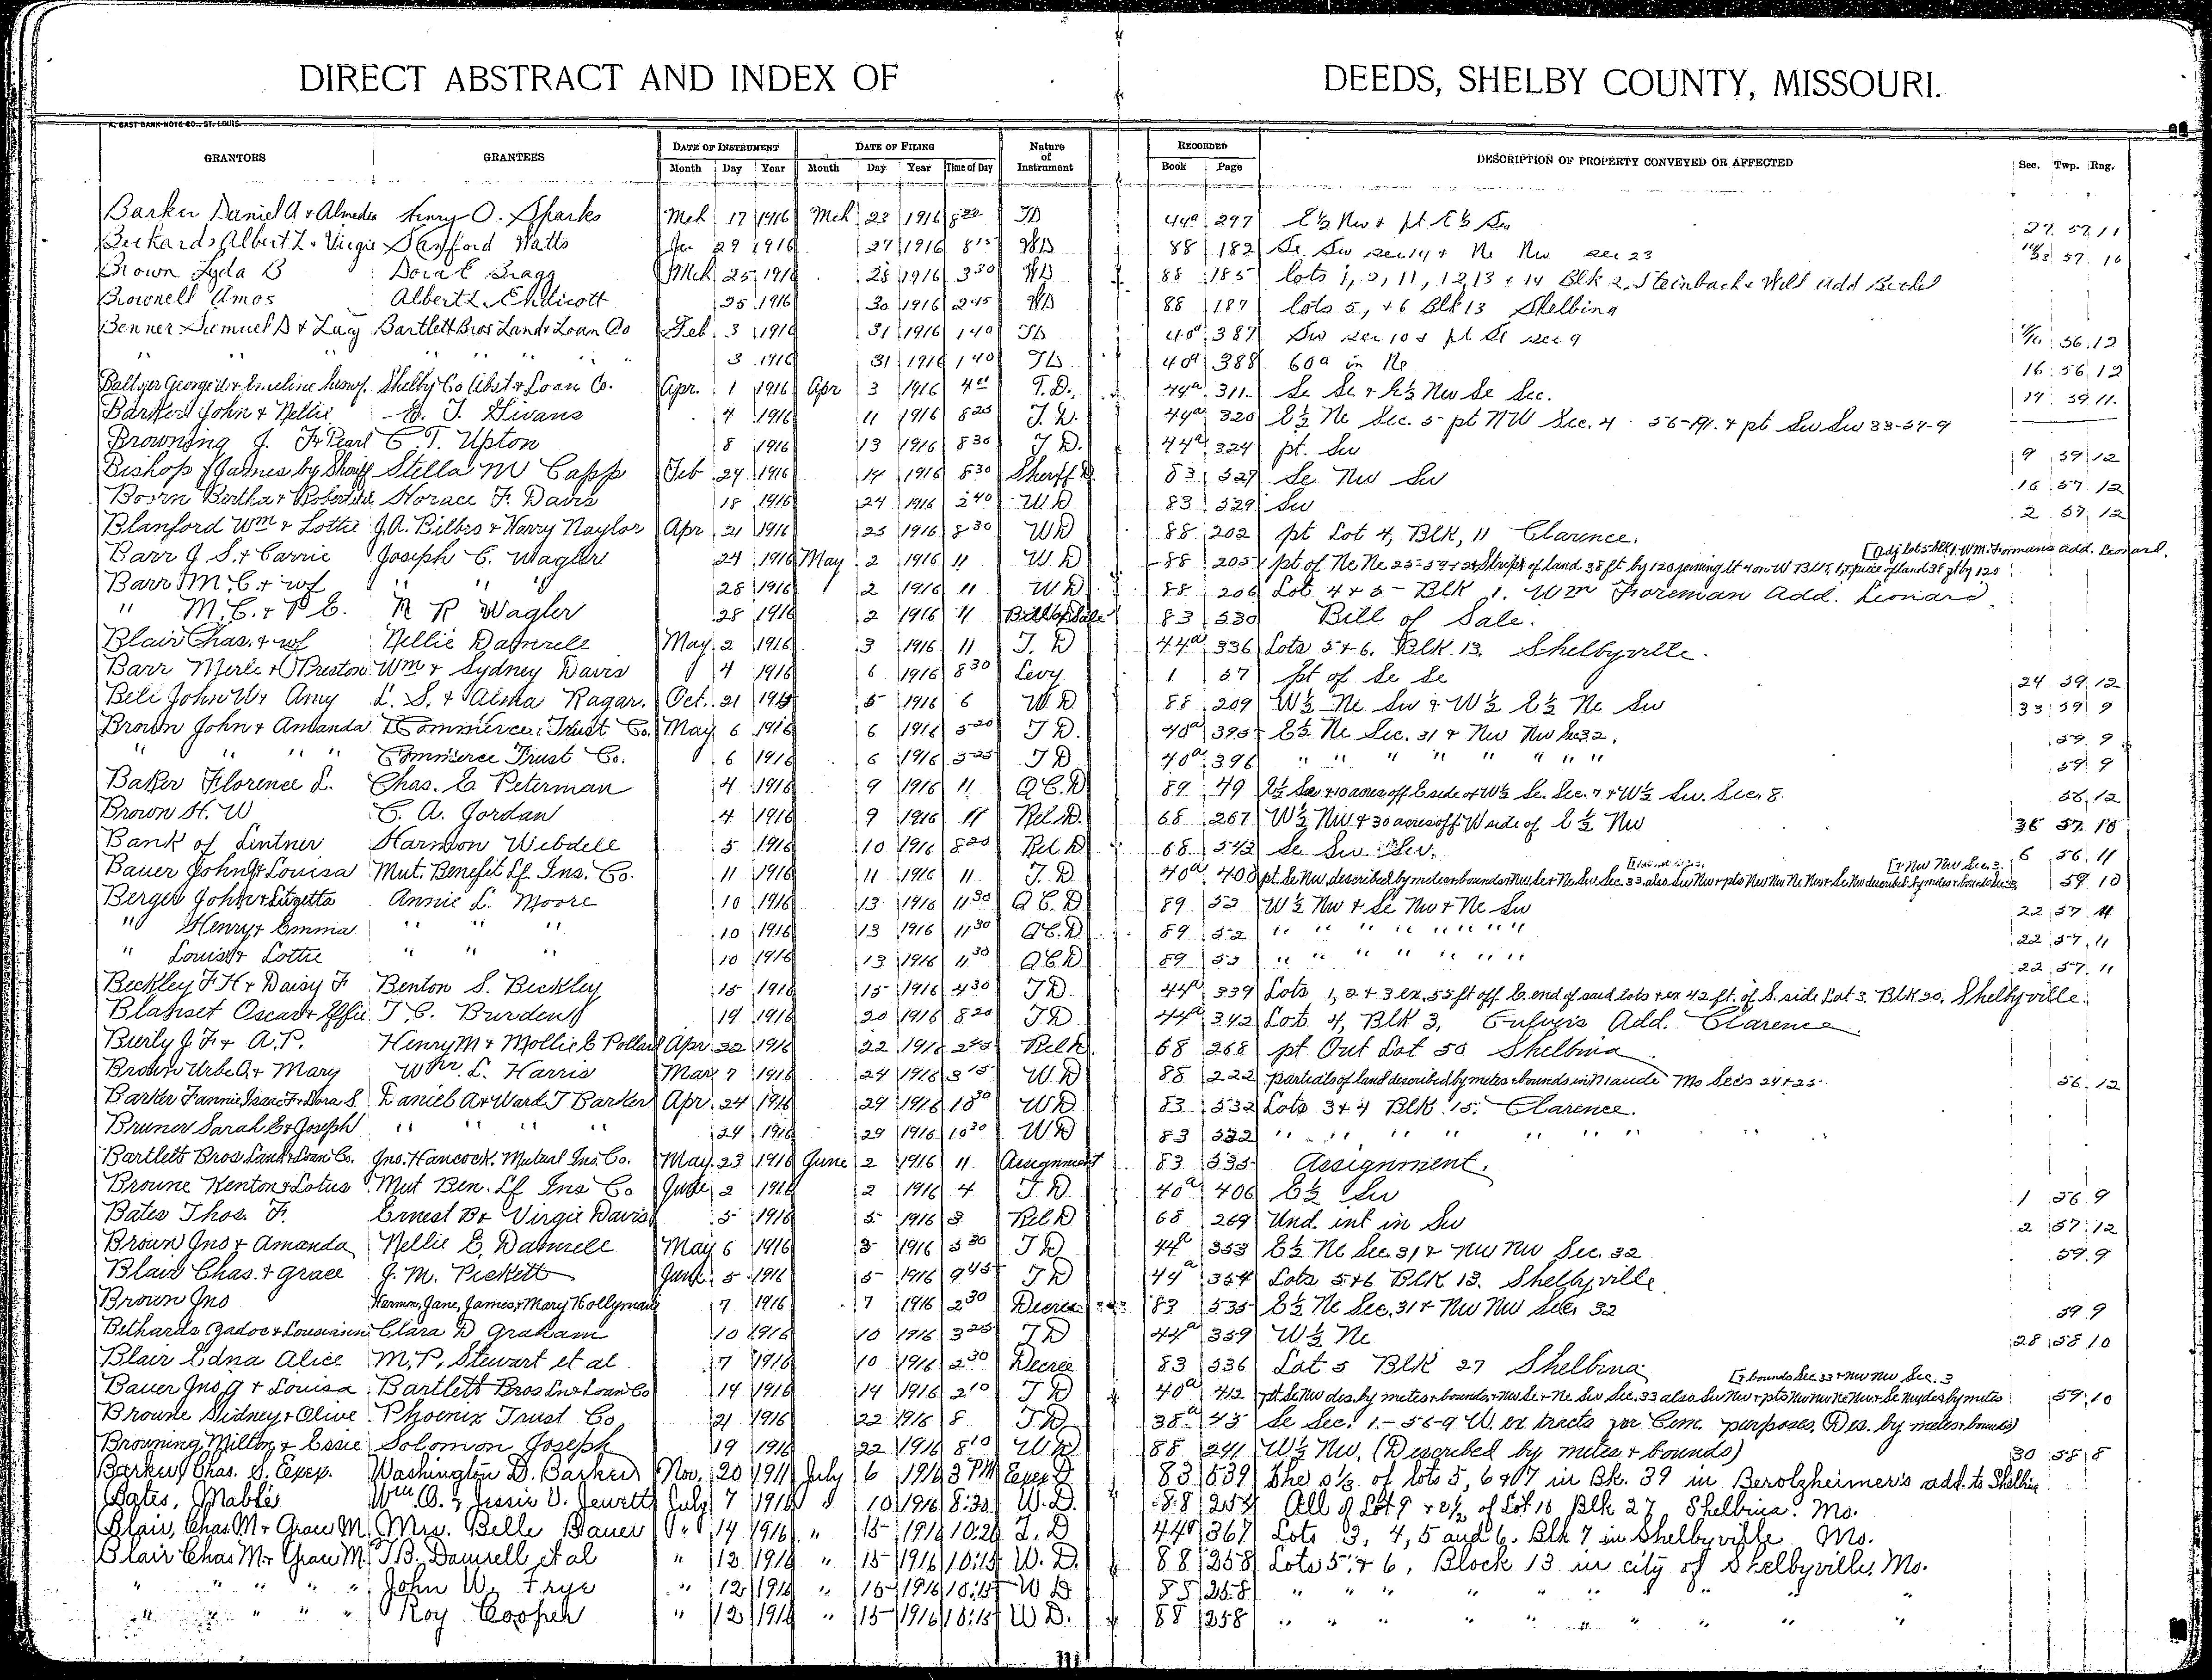 DIRECT ABSTRACT AND INDEX OF DEEDS, SHELBY COUNTY, MISSOURI.
A. GAST BANK-NOTE CO., ST. LOUIS.
GRANTORS GRANTEES DATE OF INSTRUMENT DATE OF FILING Nature of Instrument RECORDED DESCRIPTION OF PROPERTY CONVEYED OR AFFECTED Sec. Twp. Rng.
Month Day Year Month Day Year Time of Day Book Page
Barker Daniel A & Almeda Henry O. Sparks Mch 17 1916 Mch 23 1916 8 20 TD 44a 297 E½ Nw & pt E½ Sw 27 57 11
Bethards Albert L & Virgie Sanford Watts Jan 29 1916 27 1916 8 15 WD 88 182 Se Sw sec 14 & Ne Nw sec 23 14/23 57 10
Brown Lyda B Dora E Bragg Mch 25 1916 28 1916 3 30 WD 88 185 lots 1, 2, 11, 12, 13 & 14 Blk 2, Steinbach & Will add Bethel
Brownell Amos Albert L Endicott 25 1916 30 1916 2 45 WD 88 187 lots 5, & 6 Blk 13 Shelbina
Benner Samuel D & Lucy Bartlett Bros Land & Loan Co Feb 3 1916 31 1916 1 40 TD 40a 387 Sw sec 10 & pt Se sec 9 56 12
" " " " " " " 3 1916 31 1916 1 40 TD 40a 388 60a in Ne 16 56 12
Shelby Co Abst & Loan Co. Apr. 1 1916 Apr 3 1916 4 T.D. 44a 311 Se Se & E½ Nw Se Sec. 14 59 11
Barker John & Nellie T. Givans 4 1916 11 1916 8 25 T.D. 44a 320 E½ Ne Sec. 5- pt NW Sec. 4 56- & pt Sw Sw 33-57-9
Browning J. F & Pearl C. T. Upton 8 1916 13 1916 8 30 T.D. 44a 324 pt. Sw 9 59 12
Bishop James by Sheriff Stella M Capp Feb 24 1916 14 1916 8 30 Sheriff D. 83 527 Se Nw Sw 16 57 12
Bertha & Horace F. Davis 18 1916 24 1916 2 40 W.D 83 529 Sw 2 57 12
Blanford Wm & Lottie J.A. Bilbrs & Harry Naylor Apr 21 1916 25 1916 8 30 WD 88 202 pt Lot 4, BLK, 11 Clarence.
Barr J. S. & Carrie Joseph C. Wagler 24 1916 May 2 1916 11 W.D 88 205 pt of Ne Ne 25-59-12 & Strip of land 38 ft by 120 joining lt 4 on W Blk 1, & piece of land 38 ft by 120 [Adj lot 5 blk 1. Wm. Foreman's add. Leonard.
Barr M. C. & wf " " " 28 1916 2 1916 11 W D 88 206 Lot 4 & 5- BLK 1. Wm Foreman Add. Leonard.
" M. C. & P E. N R Wagler 28 1916 2 1916 11 Bill of Sale 83 530 Bill of Sale.
Blair Chas. & wf Nellie Damrell May 2 1916 3 1916 11 T. D 44a 336 Lots 5 & 6. BLK 13. Shelbyville.
Barr Merle & O Preston Wm & Sydney Davis 4 1916 6 1916 8 30 Levy 1 57 pt of Se Se 24 59 12
Bell John W & Amy L. S. & Alma Ragar. Oct. 21 1915 5 1916 6 W.D 88 209 W½ Ne Sw & W½ E½ Ne Sw 33 59 9
Brown John & Amanda Commerce Trust Co. May 6 1916 6 1916 5 20 T D. 40a 395 E½ Ne Sec. 31 & Nw Nw Sec 32. 59 9
" " " " Commerce Trust Co. 6 1916 6 1916 5 25 T D 40a 396 " " " " " " " 59 9
Baker Florence L. Chas. E Peterman 4 1916 9 1916 11 Q.C.D 89 49 E½ Se & 10 acres off E side of W½ Se. Sec. 7 & W½ Sw. Sec. 8. 56 12
Brown H. W C. A. Jordan 4 1916 9 1916 11 Rel D. 68 267 W½ Nw & 30 acres off W side of E½ Nw 36 57 10
Bank of Lentner Harrison Webdell 5 1916 10 1916 8 20 Rel D 68 542 Se Sw 6 56 11
Bauer John G & Louisa Mut. Benefit Lf. Ins. Co. 11 1916 11 1916 11 T. D 40a 400 pt. Se Nw described by metes & bounds & Nw Se & Ne Sw Sec. 33, also Sw Nw & pts Nw Nw Ne Nw & Se Nw described by metes & bounds Sec 3 [& Nw Nw Sec. 3 59 10
Berger John & Litzetta Annie L. Moore 10 1916 13 1916 11 30 Q.C.D 89 52 W½ Nw & Se Nw & Ne Sw 22 57 11
" Henry & Emma " " " 10 1916 13 1916 11 30 Q.C.D 89 52 " " " " " " " 22 57 11
" Louis & Lottie " " " 10 1916 13 1916 11 30 Q.C.D 89 52 " " " " " " " 22 57 11
Beckley F. H & Daisy F Benton S. Beckley 15 1916 15 1916 4 30 T.D. 44a 339 Lots 1, 2 & 3 ex. 55 ft off E. end of said lots & ex 42 ft. of S. side Lot 3. BLK 20. Shelbyville.
Blanset Oscar & Effie T C. Burden 19 1916 20 1916 8 20 T D 44a 342 Lot 4, BLK 3, Add. Clarence
Bierly J. F & A. P. Henry M & Mollie E Pollard Apr 22 1916 22 1916 2 45 Rel D. 68 268 pt Out Lot 50 Shelbina
Brown Urbe A & Mary Wm. L. Harris Mar 7 1916 24 1916 3 15 W. D 88 222 partials of land described by metes & bounds in Maude Mo Secs 24 & 25 56 12
Barker Fannie, Isaac F & Dora S. Daniel A & Ward T Barker Apr 24 1916 29 1916 10 30 WD 83 532 Lots 3 & 4 BLK 15. Clarence.
Bruner Sarah E & Joseph " " " " 24 1916 29 1916 10 30 W.D 83 532 " " " " " " " "
Bartlett Bros. Land & Loan Co. Jno. Hancock. Mutual Ins. Co. May 23 1916 June 2 1916 11 Assignment 83 535 Assignment.
Browne Kenton & Lotus Mut Ben. Lf Ins Co June 2 1916 2 1916 4 T. D. 40a 406 E½ Sw 1 56 9
Bates Thos. F. Ernest B & Virgie Davis 5 1916 5 1916 3 Rel. D 68 269 Und. int in Sw 2 57 12
Brown Jno & Amanda Nellie E. Damrell May 6 1916 5 1916 5 30 T D 44a 353 E½ Ne Sec. 31 & Nw Nw Sec. 32 59 9
Blair Chas. & Grace J. M. Pickett June 5 1916 5 1916 9 45 T D 44a 354 Lots 5 & 6 BLK 13. Shelbyville
Brown Jno Harmon, Jane, James, & Mary Hollyman 7 1916 7 1916 2 30 Decree 83 535 E½ Ne Sec. 31 & Nw Nw Sec. 32 59 9
Bethards Gadoc & Lousianna Clara D Graham 10 1916 10 1916 3 25 T D 44a 359 W½ Ne 28 58 10
Blair Edna Alice M. P. Stewart et al 7 1916 10 1916 2 30 Decree 83 536 Lot 5 BLK 27 Shelbina
Bauer Jno G & Louisa Bartlett Bros Ln & Loan Co 14 1916 14 1916 2 10 T D 40a 412 pt. Se Nw des. by metes & bounds & Nw Se & Ne Sw Sec. 33 also Sw Nw & pts Nw Nw Ne Nw & Se Nw des by metes [& bounds Sec. 33 & Nw Nw Sec. 3 59 10
Browne Sidney & Olive Phoenix Trust Co 21 1916 22 1916 8 T.D. 38a 43 Se Sec. 1.-56-9 W. ex tracts for Cem. purposes, (Des. by metes & bounds)
Browning Milton & Essie Solomon Joseph 19 1916 22 1916 8 10 W D 88 241 W½ Nw. (Described by metes & bounds) 30 58 8
Barker, Chas. S. Exex. Washington D. Barker Nov. 20 1911 July 6 1916 3 PM Exex D 83 539 The S½ of lots 5, 6 & 7 in Bk. 39 in Berolzheimer's add. to Shelbina
Bates, Mable Wm. O. & Jessie V. Jewett July 7 1916 " 10 1916 8:30 W.D. 88 254 All of Lot 9 & E½ of Lot 10 Blk 27 Shelbina. Mo.
Blair, Chas M & Grace M. Mrs. Belle Bauer " 14 1916 " 15 1916 10:20 T. D 44a 367 Lots 3, 4, 5 and 6. Blk 7 in Shelbyville Mo.
Blair Chas M & Grace M. T.B. Damrell et al " 12 1916 " 15 1916 10:15 W. D. 88 258 Lots 5 & 6, Block 13 in city of Shelbyville, Mo.
" " " " " John W. Frye " 12 1916 " 15 1916 10:15 W D 88 258 " " " " " " " " "
" " " " " Roy Cooper " 12 1916 " 15 1916 10:15 W D. 88 258 " " " " " " " " "